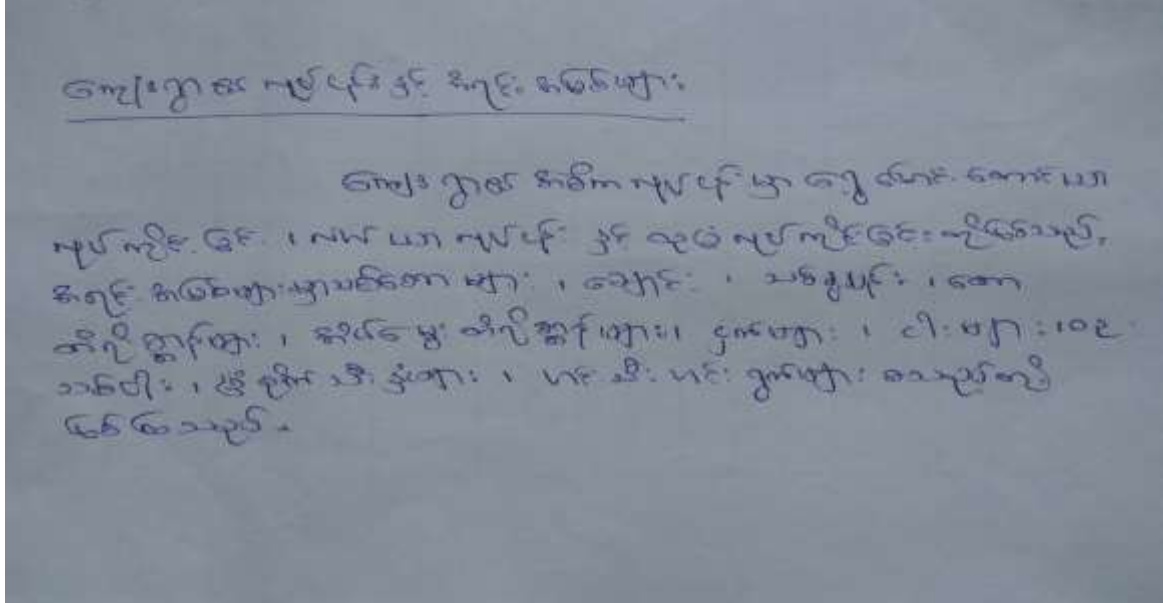 ကျေးရွာ၏ လုပ်ငန်း နှင့် အရင်း အမြစ်များ
ကျေးရွာ၏ အဓိက လုပ်ငန်းမှာ ရွှေ့ပြောင်း တောင်ယာ
လုပ်ကိုင် ခြင်း ၊ လယ် ယာ လုပ်ငန်း နှင့် လုပ်ကိုင်ခြင်းတို့ဖြစ်သည်,
အရင်း အမြစ်များမှာသစ်တောများ ၊ ချောင်း ၊ သစ်ခွပန်း ၊ တော
တိရိစ္ဆာန်များ ၊ အိမ်မွေး တိရိစ္ဆာန်များ၊ ငှက်များ ၊ ငါးများ ၊
သစ်ပါး ၊ သီးနှံများ ၊ ဟင်းသီး ဟင်းရွက်များ စသည်တို့
ဖြစ်ကြသည် ။